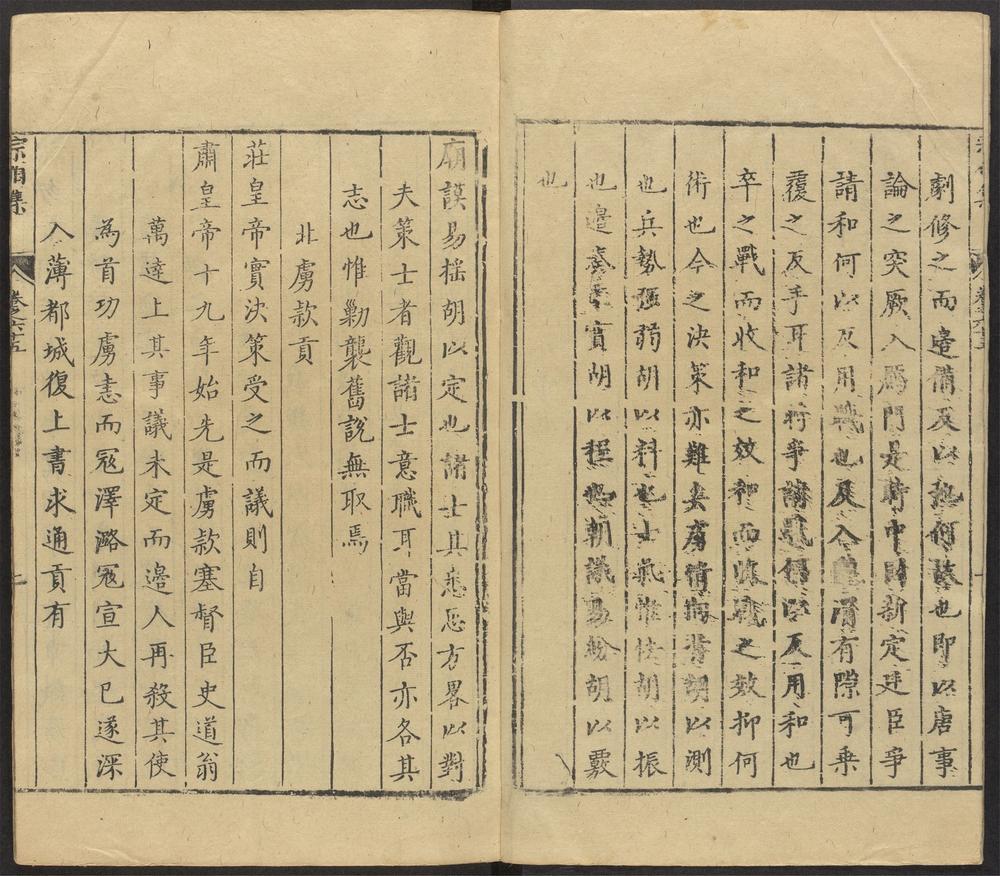 劇修之而邊備及以
也即以唐事
論之突厥入鴈門是時中國新定廷臣爭
請和何以及用戰也及入渭有隙可乗
覆之反手耳諸将爭以及用和也
卒之戰而收和之效和而收戰之效抑何
術也今之决策亦難矣虜情胡以測
也兵勢强弱胡以料也士氣惟怯胡以振
也邊實胡以程也朝議易紛胡以覈
也
廟謨易揺胡以定也諸士其悉悉方畧以對
夫策士者觀諸士意職耳當與否亦各其
志也惟勦襲舊說無取焉
北虜款貢
莊皇帝實决策受之而議則自
肅皇帝十九年始先是虜款塞督臣史道翁
萬達上其事議未定而邊人再殺其使
為首功虜恚而冦澤潞冦宣大已遂深
入薄都城復上書求通貢有
宗伯集
卷之六十五